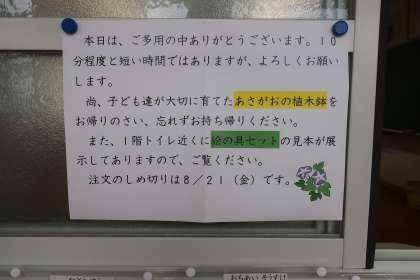 本日は、ご多用の中ありがとうございます。１０
分程度と短い時間ではありますが、よろしくお願い
します。
尚、子ども達が大切に育てたあさがおの植木鉢を
お帰りのさい、忘れずお持ち帰りください。
また、１階トイレ近くに絵の具セットの見本が展
示してありますので、ご覧ください。
注文のしめ切りは８／２１（金）です。